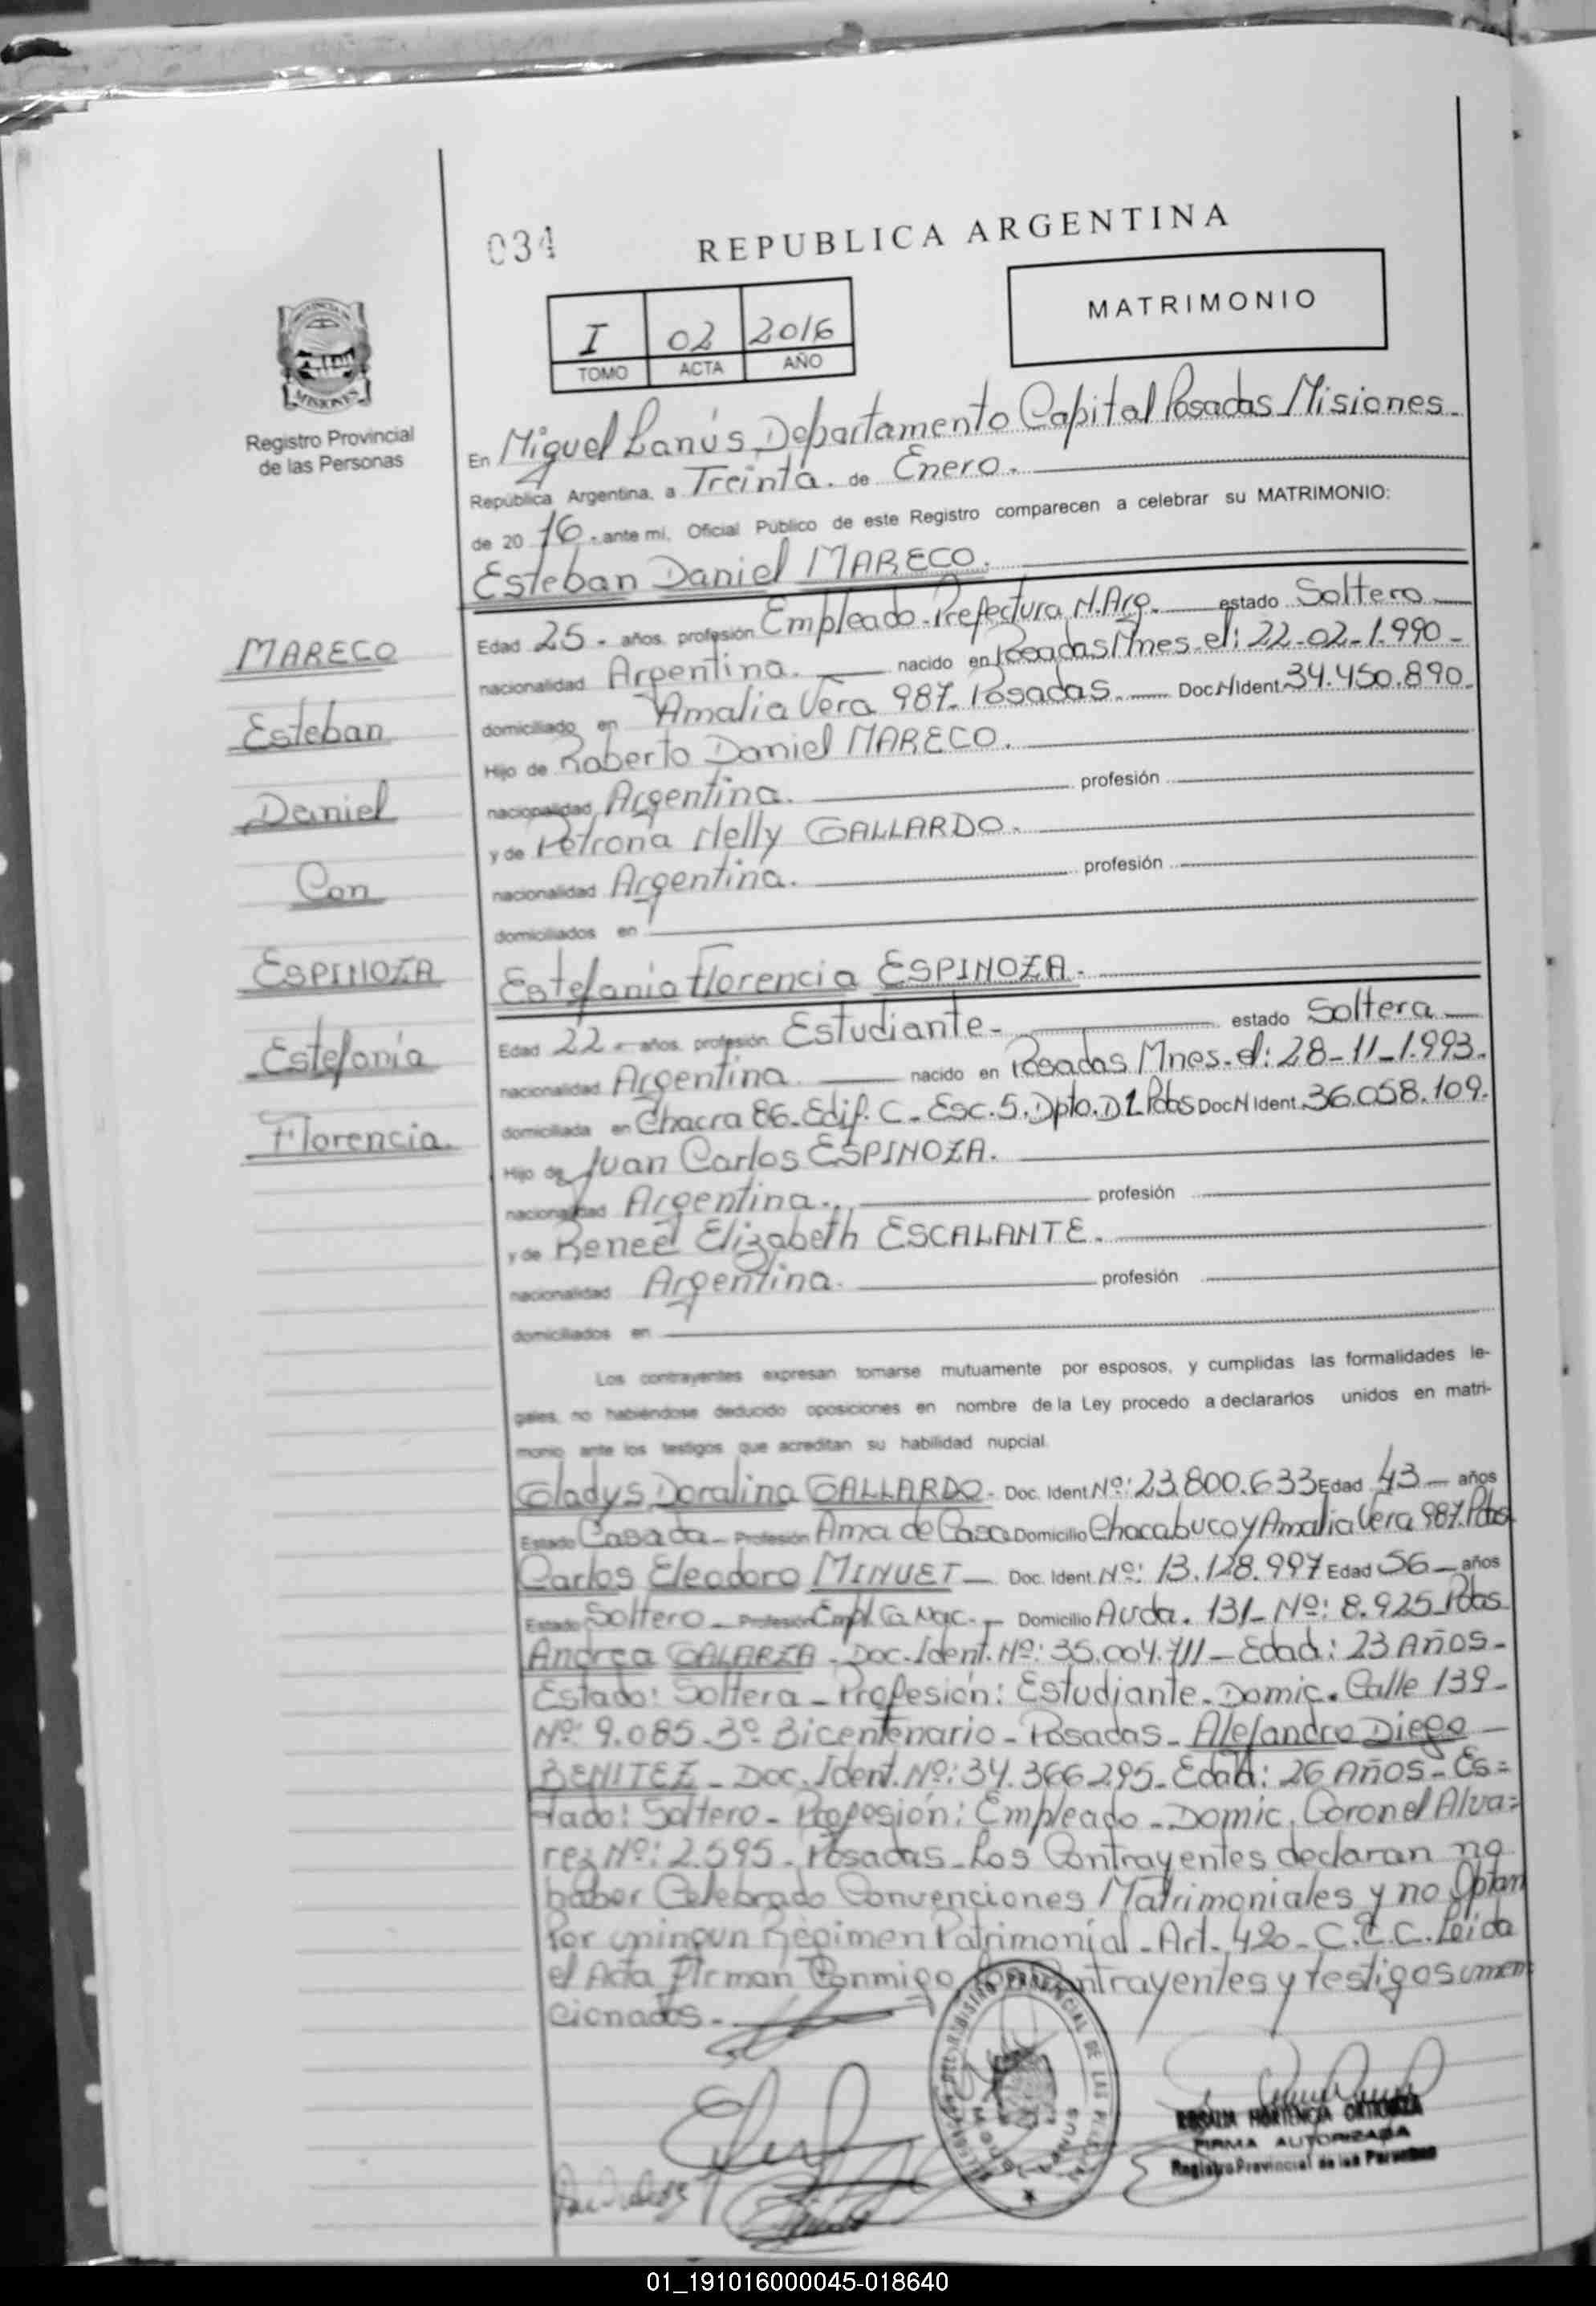 034
REPUBLICA ARGENTINA
I 02 2016
TOMO ACTA AÑO
MATRIMONIO
PROVINCIA DE
MISIONES
Registro Provincial
de las Personas
En Miguel Lanús Departamento Capital Posadas Misiones.
República Argentina, a Treinta. de Enero.
de 20 16 - ante mi, Oficial Público de este Registro comparecen a celebrar su MATRIMONIO:
Esteban Daniel MARECO.
Edad 25 - años, profesión Empleado - Prefectura N. Arg. estado Soltero
nacionalidad Argentina. nacido en Posadas Mnes. el: 22-02-1.990-
domiciliado en Amalia Vera 987- Posadas. Doc. N Ident. 34.450.890.
Hijo de Roberto Daniel MARECO.
nacionalidad Argentina. profesión
y de Petrona Nelly GALLARDO.
nacionalidad Argentina. profesión
domiciliados en
MARECO
Esteban
Daniel
Con
ESPINOZA
Estefonía
Florencia.
Estefania Florencia ESPINOZA.
Edad 22 - años, profesión Estudiante- estado Soltera
nacionalidad Argentina nacido en Posadas Mnes. el: 28-11-1.993.
domiciliada en Chacra 86. Edif. C - Esc. 5. Dpto. D1 Pdas Doc N Ident. 36.058.109.
Hijo de Juan Carlos ESPINOZA.
nacionalidad Argentina. profesión
y de Reneé Elizabeth ESCALANTE.
nacionalidad Argentina. profesión
domiciliados en
Los contrayentes expresan tomarse mutuamente por esposos, y cumplidas las formalidades le-
gales, no habiéndose deducido oposiciones en nombre de la Ley procedo a declararlos unidos en matri-
monio ante los testigos que acreditan su habilidad nupcial.
Gladys Doralina GALLARDO- Doc. Ident. Nº: 23.800.633 Edad 43 - años
Estado Casada - Profesión Ama de Casa Domicilio Chacabuco y Amalia Vera 987. Pdas
Carlos Eleodoro MINUET - Doc. Ident. Nº: 13.128.997 Edad 56 - años
Estado Soltero - Profesión Empl. G. Nac. - Domicilio Avda. 131- Nº: 8.925 Pdas
Andrea GALARZA - Doc. Ident. Nº: 35.004.711 - Edad: 23 Años -
Estado: Soltera - Profesión: Estudiante - Domic. Calle 139 -
Nº: 9.085 - Bº Bicentenario - Posadas - Alejandro Diego
BENITEZ - Doc. Ident. Nº: 34.366.295 - Edad: 26 Años - Es=
tado: Soltero - Profesión: Empleado - Domic. Coronel Alva=
rez Nº: 2.595 - Posadas - Los Contrayentes declaran no
haber Celebrado Convenciones Matrimoniales y no Optan
Por ningun Régimen Patrimonial - Art - 420 - C.C.C. Leida
el Acta Firman Conmigo los Contrayentes y testigos men
cionados.-
REGISTRO PROVINCIAL DE LAS
MIGUEL LANUS
ROSALIA HORTENCIA
FIRMA AUTORIZADA
Registro Provincial de las Personas
01_191016000045-018640